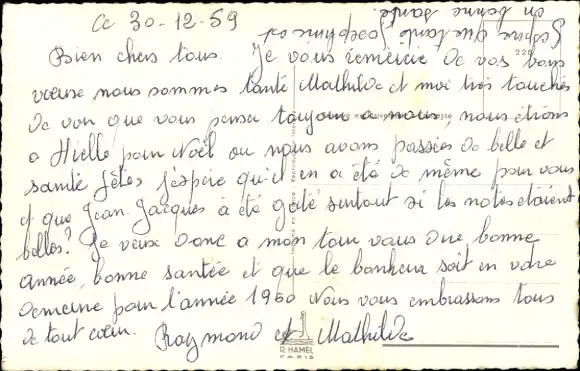 Ce 30-12-59
Bien chers tous. Je vous remercie de vos bons
voeux, nous sommes tante Mathilde et moi très touchés
de voir que vous penser toujour a nous, nous étions
a Hielle pour Noël ou nous avons passées de belle et
santé fêtes j'espère qu'il en a été de même pour vous
et que Jean-Jacques à été gâté surtout si les notes étaient
belles? Je veux donc a mon tour vous dire bonne
année, bonne santée et que le bonheur soit en votre
demeure pour l'année 1960 Nous vous embrassons tous
de tout coeur. Raymond et Mathilde
J'espère que tante Joséphine est
en bonne santé.
R. HAMEL
PARIS